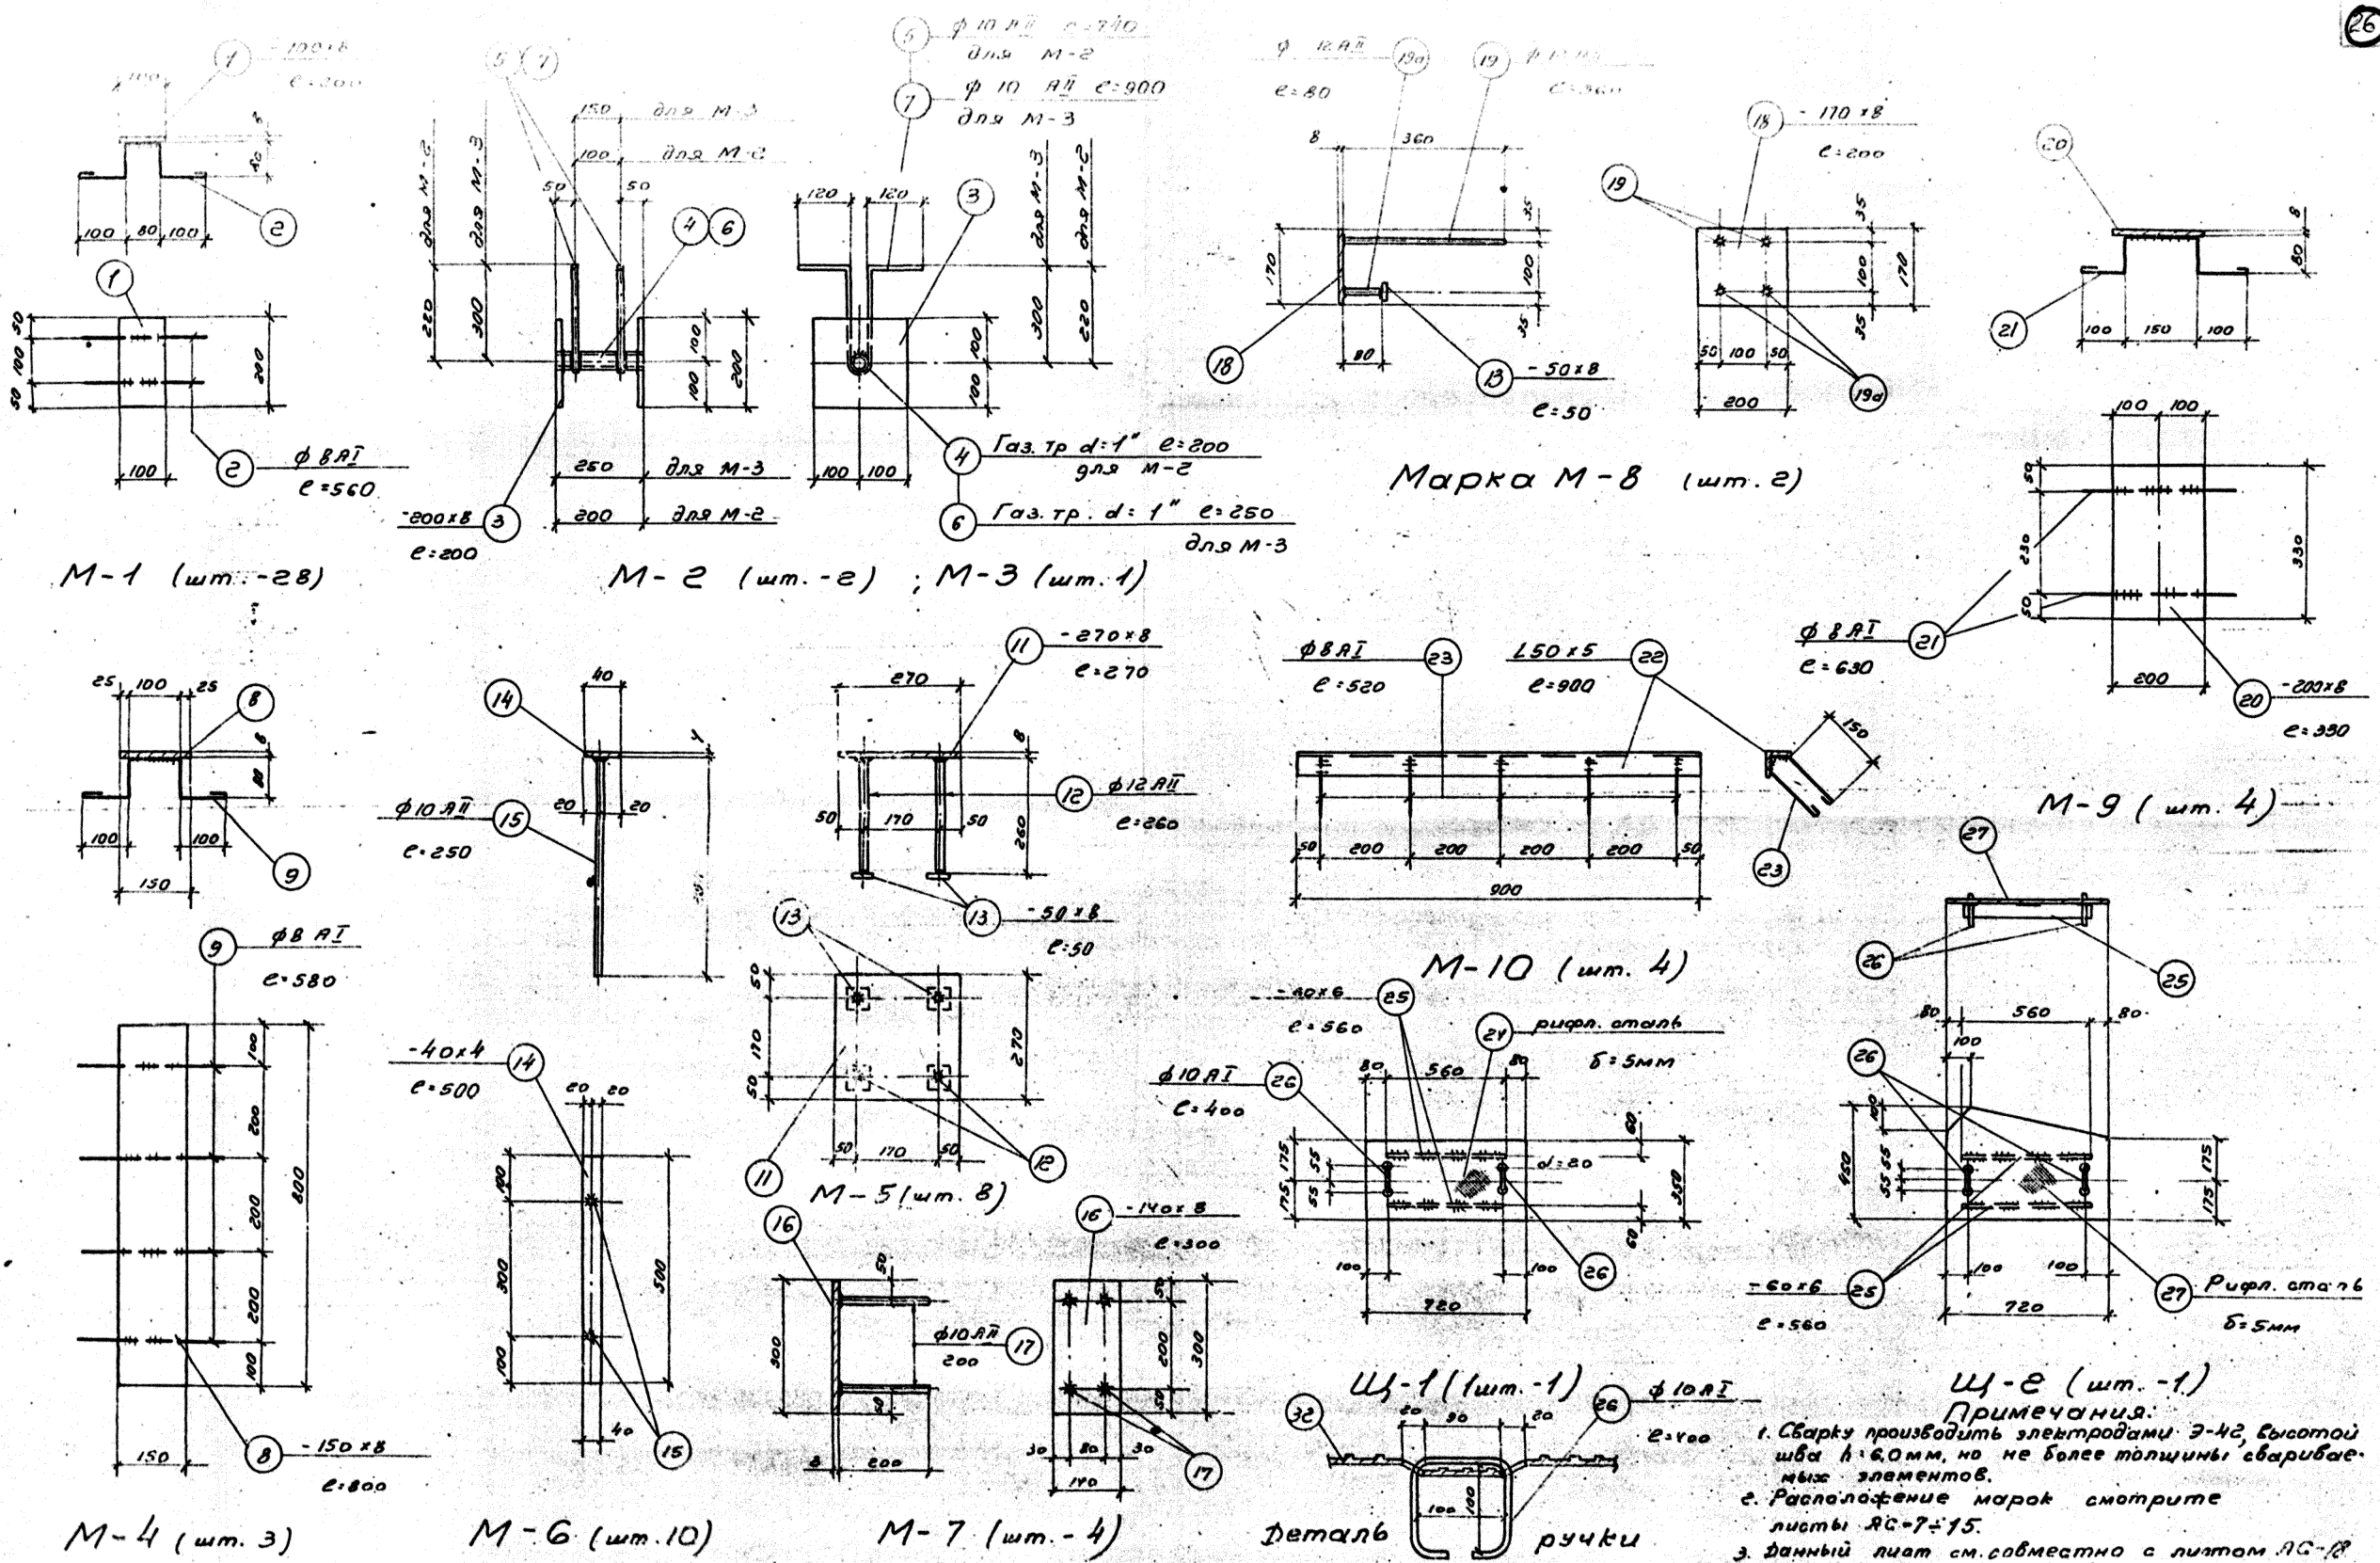 26
1 -100×8
ℓ=200
100
8
80
100 80 100
2
1
50 100 50
200
100
2 ф8АI
ℓ=560
М-1 (шт.-28)
5 7
5 ф10АII ℓ=740
для М-2
7 ф10 АII ℓ=900
для М-3
150 для М-3
100 для М-2
50 50
для М-2
для М-3
220
300
4 6
100
100
200
250 для М-3
200 для М-2
-200×8 3
ℓ=200
120 120
3
для М-3
для М-2
300
220
100
100
100 100
4 Газ. тр d=1" ℓ=200
для М-2
6 Газ. тр. d=1" ℓ=250
для М-3
М-2 (шт.-2) ; М-3 (шт.1)
ф 12АII 19а 19
ℓ=80
8 360
170
35
100
35
80
18
13 -50×8
ℓ=50
18 -170×8
ℓ=200
19
35
100
35
170
50 100 50
200
19а
Марка М-8 (шт.2)
20
8
80
21
100 150 100
100 100
50
230
50
330
ф8АI 21
ℓ=630
200
20 -200×8
ℓ=330
М-9 (шт. 4)
25 100 25
8
8
80
100 100
150
9
9 ф8 АI
ℓ=580
100
200
200
200
100
800
150
8 -150×8
ℓ=800
М-4 (шт. 3)
40
14
4
20 20
ф10АII 15
ℓ=250
-40×4 14
ℓ=500
20 20
100
300
100
500
40
15
М-6 (шт.10)
11 -270×8
ℓ=270
270
8
12 ф12АII
ℓ=260
50 170 50
260
13 -50×8
ℓ=50
13
50
170
50
270
50 170 50
11
12
М-5 (шт. 8)
16
16 -140×8
ℓ=300
50
300
ф10АII 17
200
50
8 200
50
200
50
300
30 80 30
140
17
М-7 (шт.-4)
ф8АI 23
ℓ=520
L50×5 22
ℓ=900
150
50 200 200 200 200 50
900
23
М-10 (шт. 4)
25
ℓ=560
24 рифл. сталь
δ=5мм
ф10АI 26
ℓ=400
80 560 80
60
175
175
55
55
d=20
350
60
100 100
26
720
Щ-1 (1шт.-1)
27
26
25
80 560 80
100
26
100
450
55 55
175
175
100 100
-60×6 25
ℓ=560
720
27 Рифл. сталь
δ=5мм
Щ-2 (шт.-1)
32
20 90 20
26 ф10АI
ℓ=400
100
100
Деталь ручки
Примечания:
1. Сварку производить электродами Э-42, высотой
шва h=6,0мм, но не более толщины сваривае-
мых элементов.
2. Расположение марок смотрите
листы АС-7÷15.
3. Данный лист см. совместно с листом АС-18